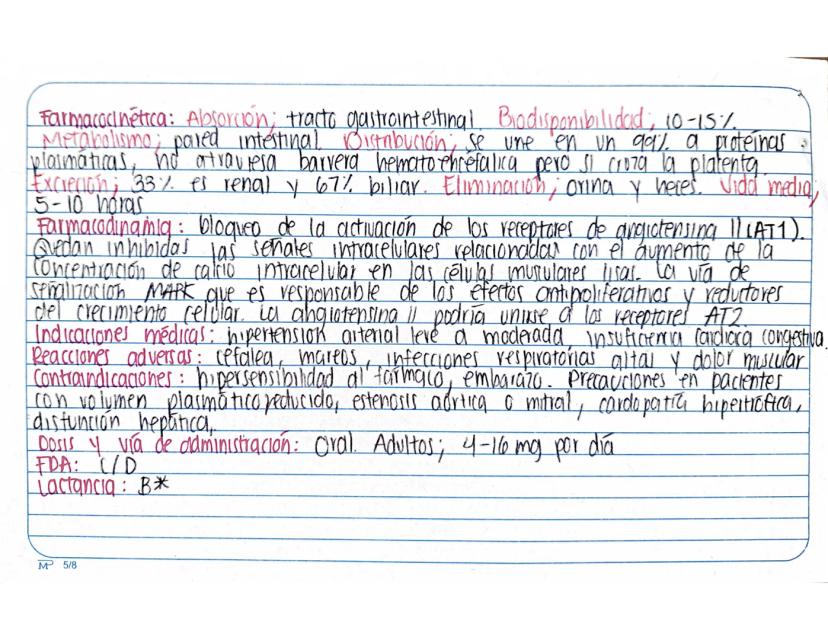 Farmacocinética: Absorción; tracto gastrointestinal Biodisponibilidad; 10-15%
Metabolismo; pared intestinal. Distribución; se une en un 99% a proteínas
plasmáticas, no atraviesa barrera hematoencéfalica pero si cruza la platenta.
Excreción; 33% es renal y 67% biliar. Eliminación; orina y heces. Vida media;
5-10 horas
Farmacodinamia: bloqueo de la activación de los receptores de angiotensina II (AT1).
Quedan inhibidas las señales intracelulares relacionadas con el aumento de la
concentración de calcio intracelular en las células musulares lisas. La vía de
señalización MAPK que es responsable de los efectos antipoliferativos y reductores
del crecimiento celular. La angiotensina II podría unirse a los receptores AT2.
Indicaciones médicas: hipertensión arterial leve a moderada, insuficiencia cardiaca congestiva.
Reacciones adversas: cefalea, mareos, infecciones respiratorias altas y dolor muscular
Contraindicaciones: hipersensibilidad al fármaco, embarazo. Precauciones en pacientes
con volumen plasmático reducido, estenosis aórtica o mitral, cardopatía hipertrófica,
disfunción hepática.
Dosis y vía de administración: Oral. Adultos; 4-16 mg por día
FDA: C/D
Lactancia: B*
MP 5/8